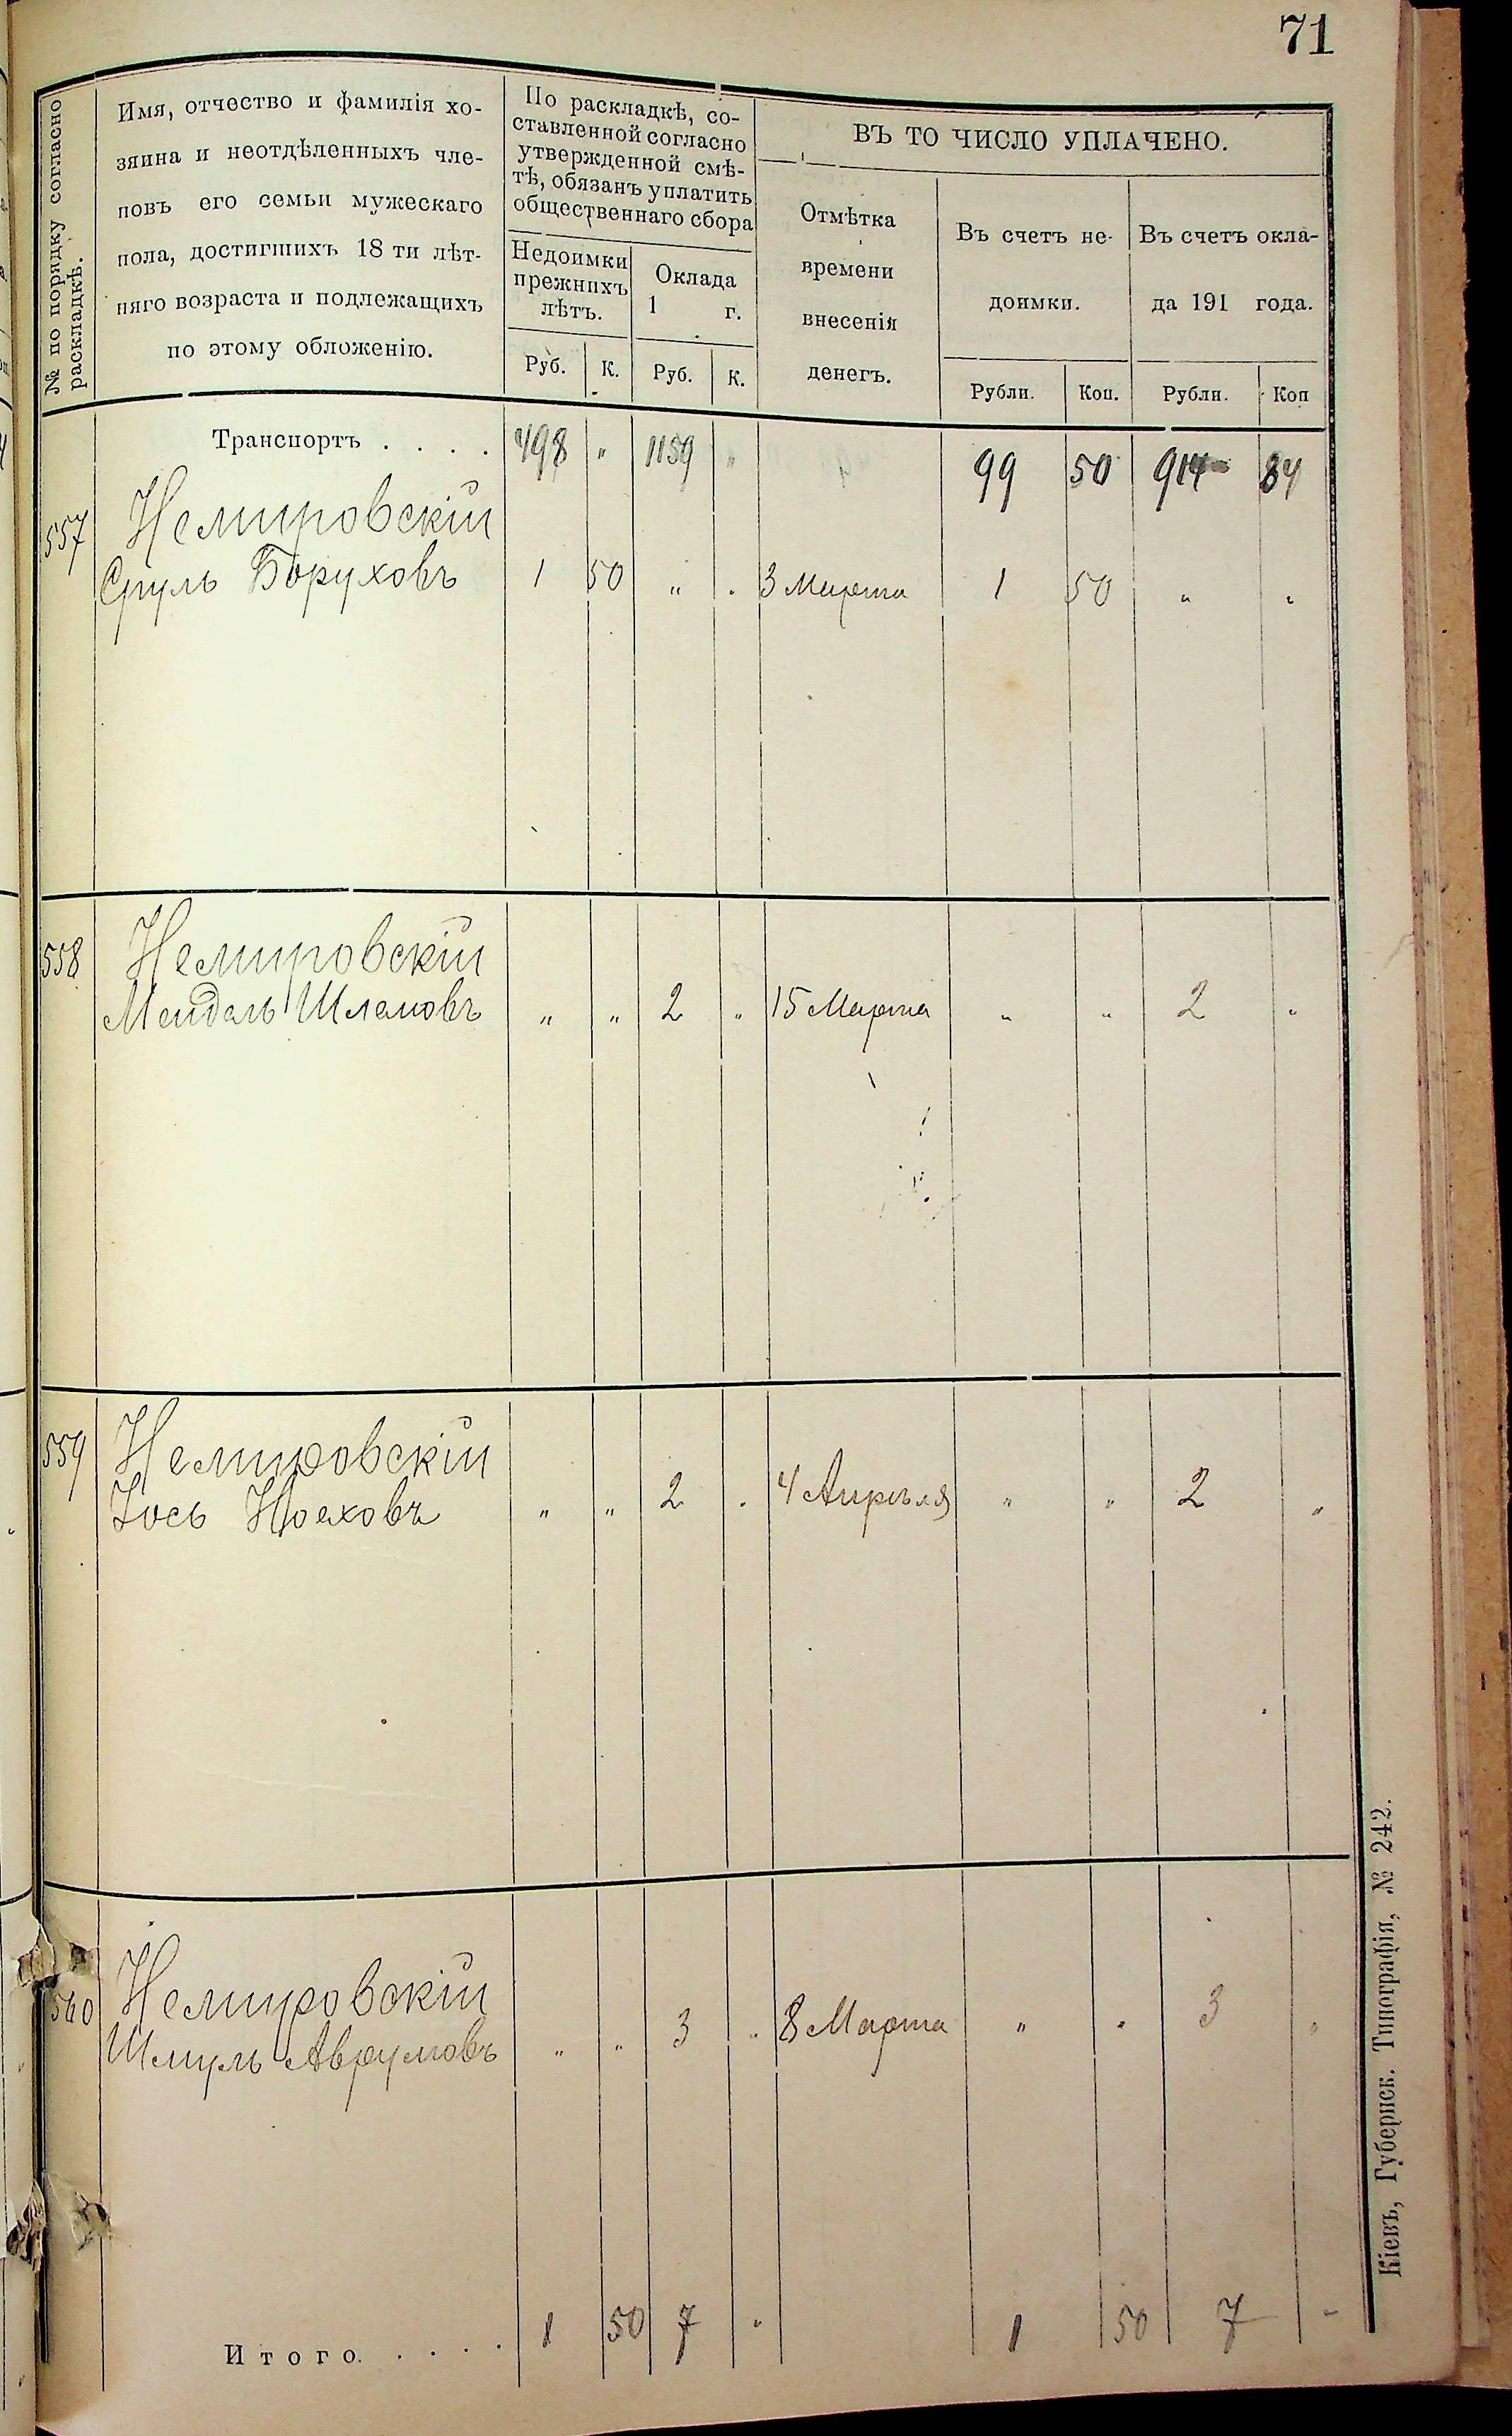 71
№ по порядку согласно
раскладкѣ.
Имя, отчество и фамилія хо-
зяина и неотдѣленныхъ чле-
новъ его семьи мужескаго
пола, достигшихъ 18 ти лѣт-
няго возраста и подлежащихъ
по этому обложенію.
По раскладкѣ, со-
ставленной согласно
утвержденной смѣ-
тѣ, обязанъ уплатить
общественнаго сбора
Недоимки
прежнихъ
лѣтъ.
Оклада
1 г.
Руб. К. Руб. К.
ВЪ ТО ЧИСЛО УПЛАЧЕНО.
Отмѣтка
времени
внесенія
денегъ.
Въ счетъ не-
доимки.
Въ счетъ окла-
да 191 года.
Рубли. Коп. Рубли. Коп
Транспортъ . . . . 498 " 1159 " 99 50 914 84
557 Немировскій
Сруль Боруховъ 1 50 " " 3 Марта 1 50 " "
558 Немировскій
Мендель Шлемовъ " " 2 " 15 Марта " " 2 "
559 Немировскій
Іось Ноеховъ " " 2 " 4 Апрѣля " " 2 "
560 Немировскій
Шмуль Аврумовъ " " 3 " 8 Марта " " 3 "
Итого. . . . . 1 50 7 " 1 50 7 "
Кіевъ, Губернск. Типографія, № 242.